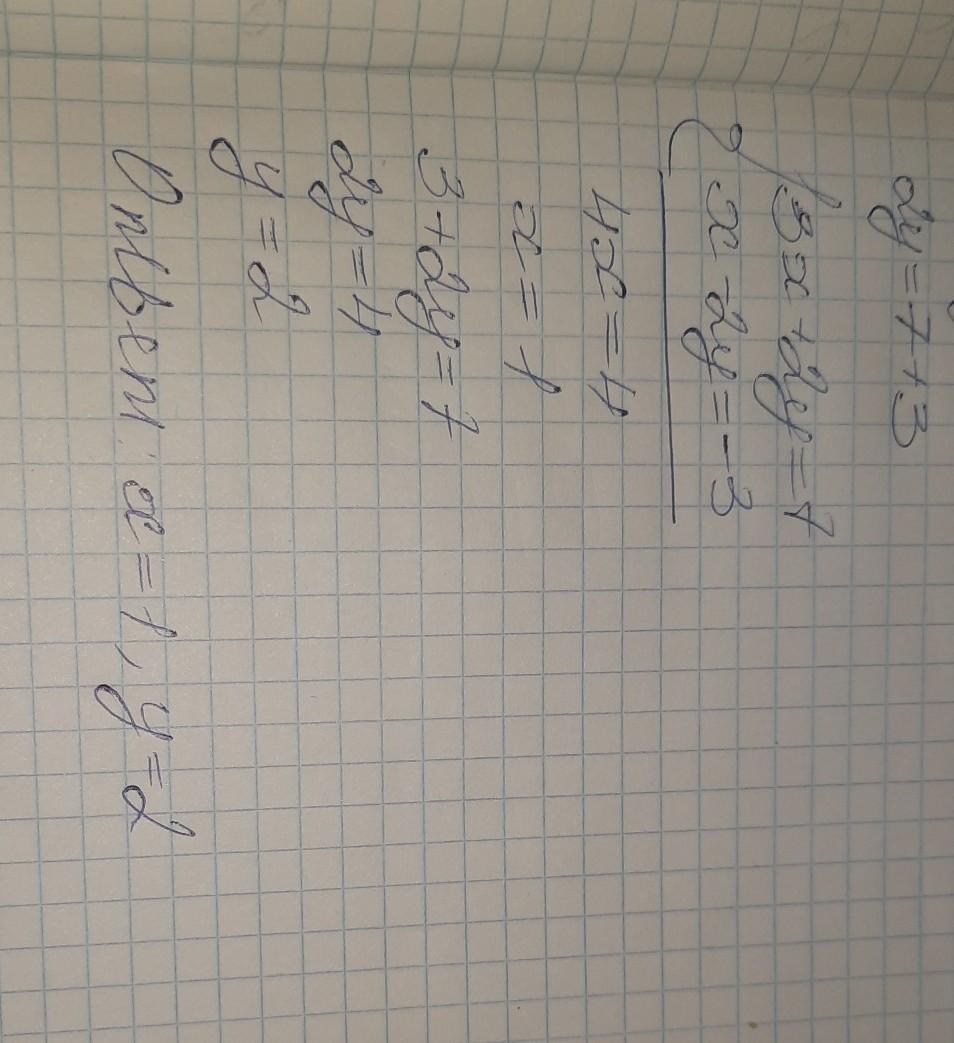 2y = 7 + 3
3x + 2y = 7
x - 2y = -3
4x = 4
x = 1
3 + 2y = 7
2y = 4
y = 2
Ответ: x = 1, y = 2